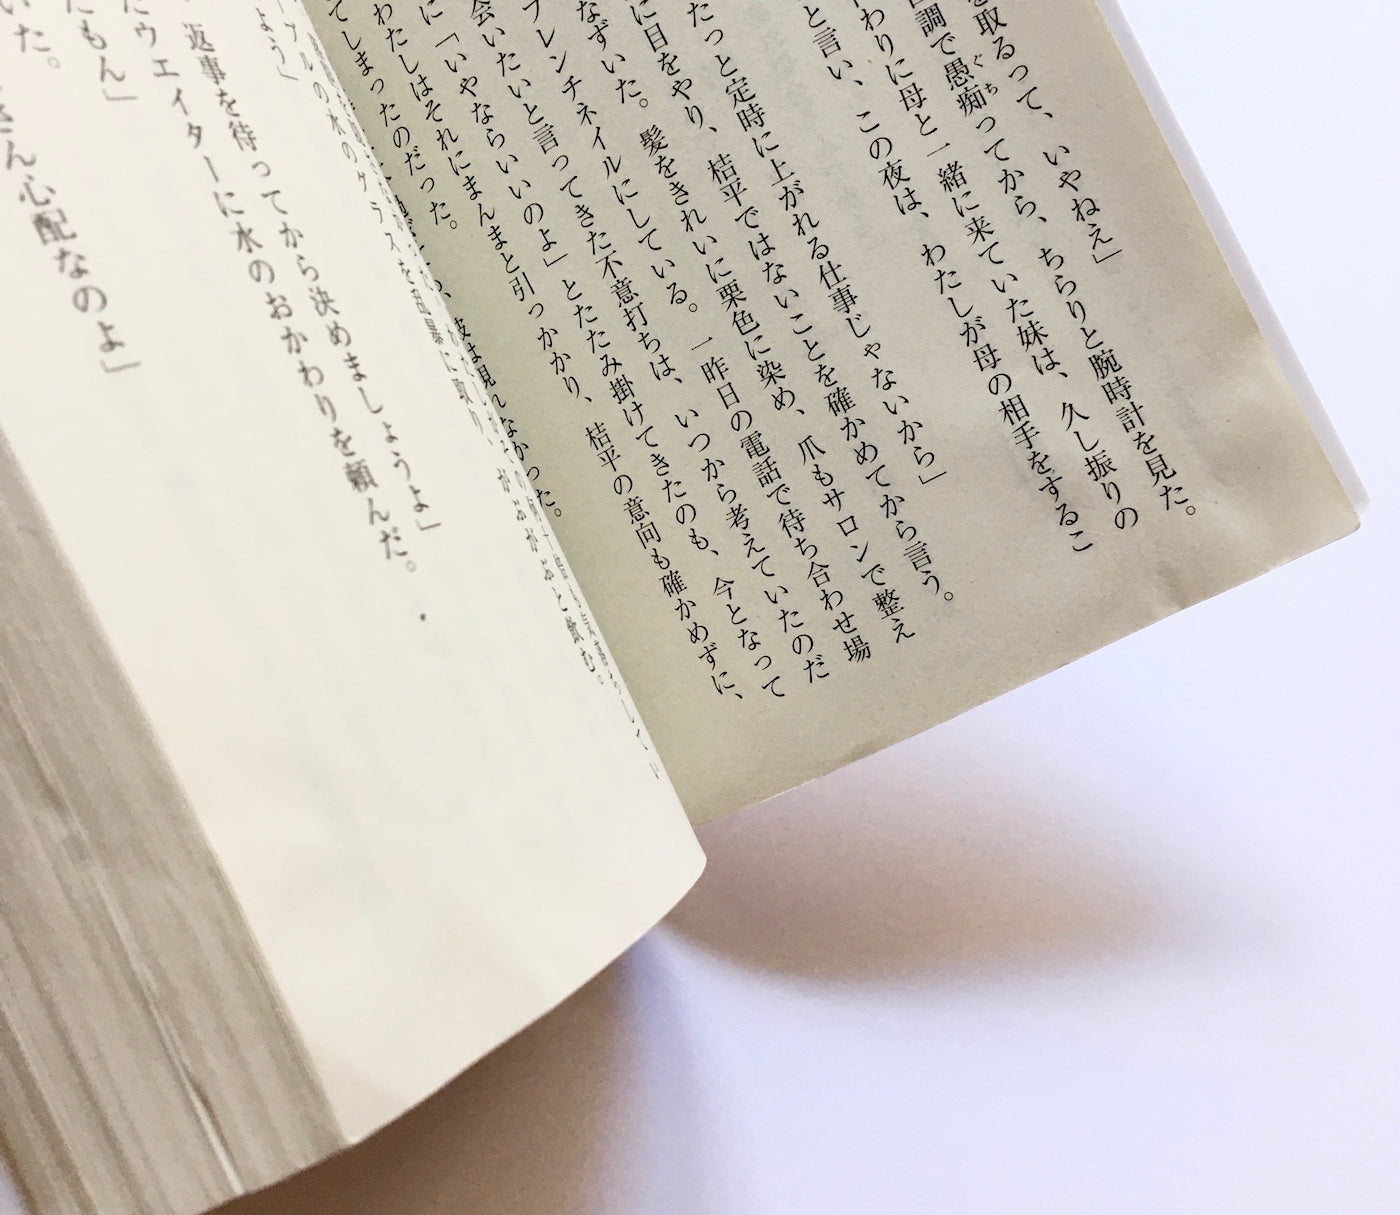 を取るって、いやねえ」
口調で愚痴ってから、ちらりと腕時計を見た。
ぐち
わりに母と一緒に来ていた妹は、久し振りの
と言い、この夜は、わたしが母の相手をするこ
たっと定時に上がれる仕事じゃないから」
に目をやり、桔平ではないことを確かめてから言う。
なずいた。髪をきれいに栗色に染め、爪もサロンで整え
フレンチネイルにしている。一昨日の電話で待ち合わせ場
会いたいと言ってきた不意打ちは、いつから考えていたのだ
に「いやならいいのよ」とたたみ掛けてきたのも、今となって
わたしはそれにまんまと引っかかり、桔平の意向も確かめずに、
てしまったのだった。
彼は現れなかった。
ーブルの水のグラスを乱暴に取り、がぶがぶと飲む。
よう」
返事を待ってから決めましょうよ」
たウエイターに水のおかわりを頼んだ。
たもん」
いた。
さん心配なのよ」